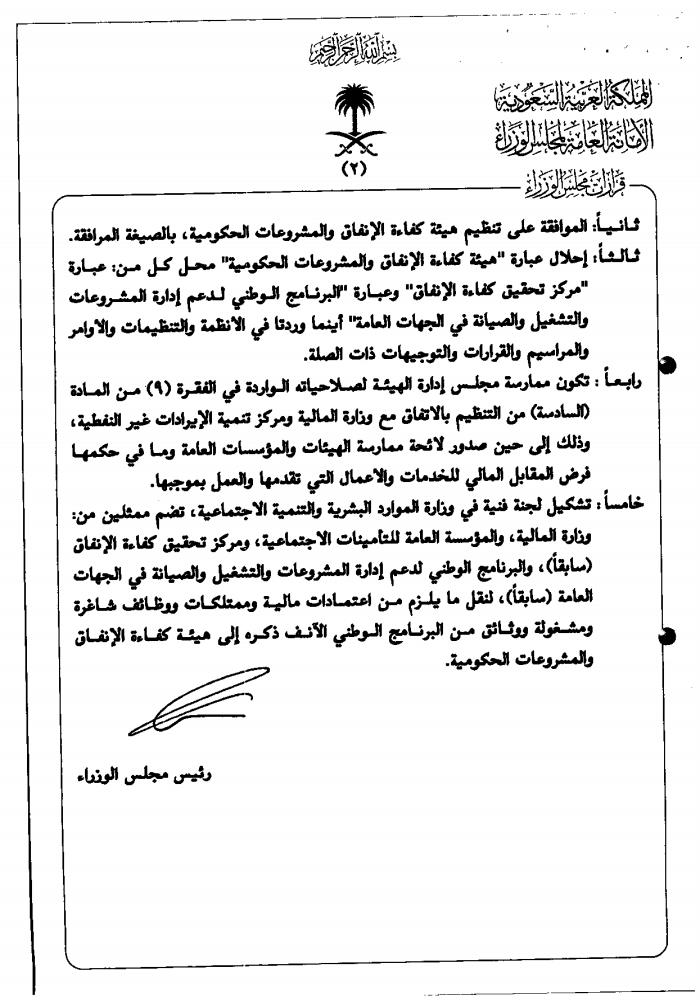 بسم الله الرحمن الرحيم
المملكة العربية السعودية
الأمانة العامة لمجلس الوزراء
(٢)
قرارات مجلس الوزراء
ثانياً: الموافقة على تنظيم هيئة كفاءة الإنفاق والمشروعات الحكومية، بالصيغة المرافقة.
ثالثاً: إحلال عبارة "هيئة كفاءة الإنفاق والمشروعات الحكومية" محل كل من: عبارة
"مركز تحقيق كفاءة الإنفاق" وعبارة "البرنامج الوطني لدعم إدارة المشروعات
والتشغيل والصيانة في الجهات العامة" أينما وردتا في الأنظمة والتنظيمات والأوامر
والمراسيم والقرارات والتوجيهات ذات الصلة.
رابعاً: تكون ممارسة مجلس إدارة الهيئة لصلاحياته الواردة في الفقرة (٩) من المادة
(السادسة) من التنظيم بالاتفاق مع وزارة المالية ومركز تنمية الإيرادات غير النفطية،
وذلك إلى حين صدور لائحة ممارسة الهيئات والمؤسسات العامة وما في حكمها
فرض المقابل المالي للخدمات والأعمال التي تقدمها والعمل بموجبها.
خامساً: تشكيل لجنة فنية في وزارة الموارد البشرية والتنمية الاجتماعية، تضم ممثلين من:
وزارة المالية، والمؤسسة العامة للتأمينات الاجتماعية، ومركز تحقيق كفاءة الإنفاق
(سابقاً)، والبرنامج الوطني لدعم إدارة المشروعات والتشغيل والصيانة في الجهات
العامة (سابقاً)، لنقل ما يلزم من اعتمادات مالية وممتلكات ووظائف شاغرة
ومشغولة ووثائق من البرنامج الوطني الآنف ذكره إلى هيئة كفاءة الإنفاق
والمشروعات الحكومية.
رئيس مجلس الوزراء